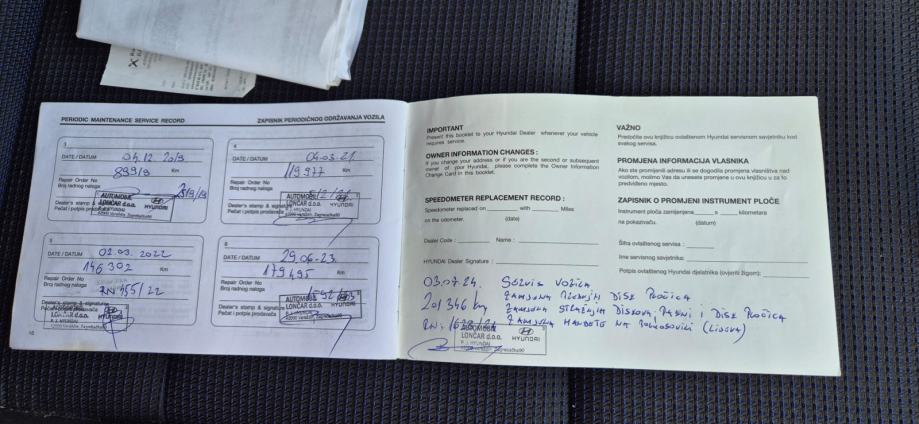 PERIODIC MAINTENANCE SERVICE RECORD
ZAPISNIK PERIODIČNOG ODRŽAVANJA VOZILA
3
DATE / DATUM 04.12.2019
Km
Repair Order No
Broj radnog naloga
Dealer's stamp & signature
Pečat i potpis prodavača
AUTOMOBILI
LONČAR d.o.o.
HYUNDAI
4
DATE / DATUM 04.03.21
119977 Km
Repair Order No
Broj radnog naloga
Dealer's stamp & signature
Pečat i potpis prodavača
AUTOMOBILI
LONČAR d.o.o.
HYUNDAI
5
DATE / DATUM 02.03.2022
146 302 Km
Repair Order No
Broj radnog naloga
RN 455/22
Dealer's stamp & signature
Pečat i potpis prodavača
LONČAR d.o.o.
HYUNDAI
6
DATE / DATUM 29.06-23
179495 Km
Repair Order No
Broj radnog naloga
Dealer's stamp & signature
Pečat i potpis prodavača
AUTOMOBILI
LONČAR d.o.o.
HYUNDAI
10
IMPORTANT
Present this booklet to your Hyundai Dealer whenever your vehicle
requires service.
OWNER INFORMATION CHANGES :
If you change your address or if you are the second or subsequent
owner of your Hyundai, please complete the Owner Information
Change Card in this booklet.
SPEEDOMETER REPLACEMENT RECORD :
Speedometer replaced on with Miles
on the odometer. (date)
Dealer Code : Name :
HYUNDAI Dealer Signature :
VAŽNO
Predočite ovu knjižicu ovlaštenom Hyundai servisnom savjetniku kod
svakog servisa.
PROMJENA INFORMACIJA VLASNIKA
Ako ste promijenili adresu ili se dogodila promjena vlasništva nad
vozilom, molimo Vas da unesete promjene u ovu knjižicu u za to
predviđeno mjesto.
ZAPISNIK O PROMJENI INSTRUMENT PLOČE
Instrument ploča zamijenjena s kilometara
na pokazivaču. (datum)
Šifra ovlaštenog servisa :
Ime servisnog savjetnika:
Potpis ovlaštenog Hyundai djelatnika (ovjeriti žigom):
03.07.24. SERVIS VOZILA
ZAMJENA PREDNJIH DISK PLOČICA
201346 km ZAMJENA STRAŽNJIH DISKOVA I DISK PLOČICA
RN. ZAMJENA MANŽETE NA POLUOSOVINI (LIJEVA)
AUTOMOBILI
LONČAR d.o.o.
P. J. HYUNDAI
HYUNDAI